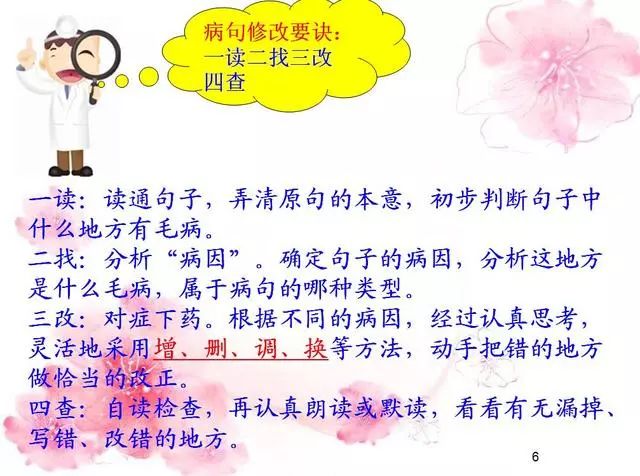 病句修改要诀：
一读二找三改
四查
一读：读通句子，弄清原句的本意，初步判断句子中
什么地方有毛病。
二找：分析“病因”。确定句子的病因，分析这地方
是什么毛病，属于病句的哪种类型。
三改：对症下药。根据不同的病因，经过认真思考，
灵活地采用增、删、调、换等方法，动手把错的地方
做恰当的改正。
四查：自读检查，再认真朗读或默读，看看有无漏掉、
写错、改错的地方。
6